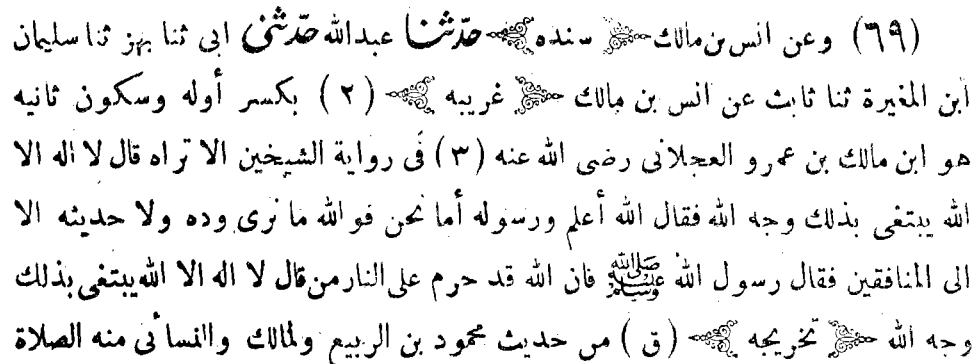 (٦٩) وعن انس بن مالك سنده حدّثنا عبدالله حدّثنى ابى ثنا بهز ثنا سليمان
ابن المغيرة ثنا ثابت عن انس بن مالك غريبه (٢) بكسر أوله وسكون ثانيه
هو ابن مالك بن عمرو العجلانى رضى الله عنه (٣) فى رواية الشيخين الا تراه قال لا اله الا
الله يبتغى بذلك وجه الله فقال الله أعلم ورسوله أما نحن فو الله ما نرى وده ولا حديثه الا
الى المنافقين فقال رسول الله ﷺ فان الله قد حرم على النار من قال لا اله الا الله يبتغى بذلك
وجه الله تخريجه (ق) من حديث محمود بن الربيع ولمالك والنسائى منه الصلاة